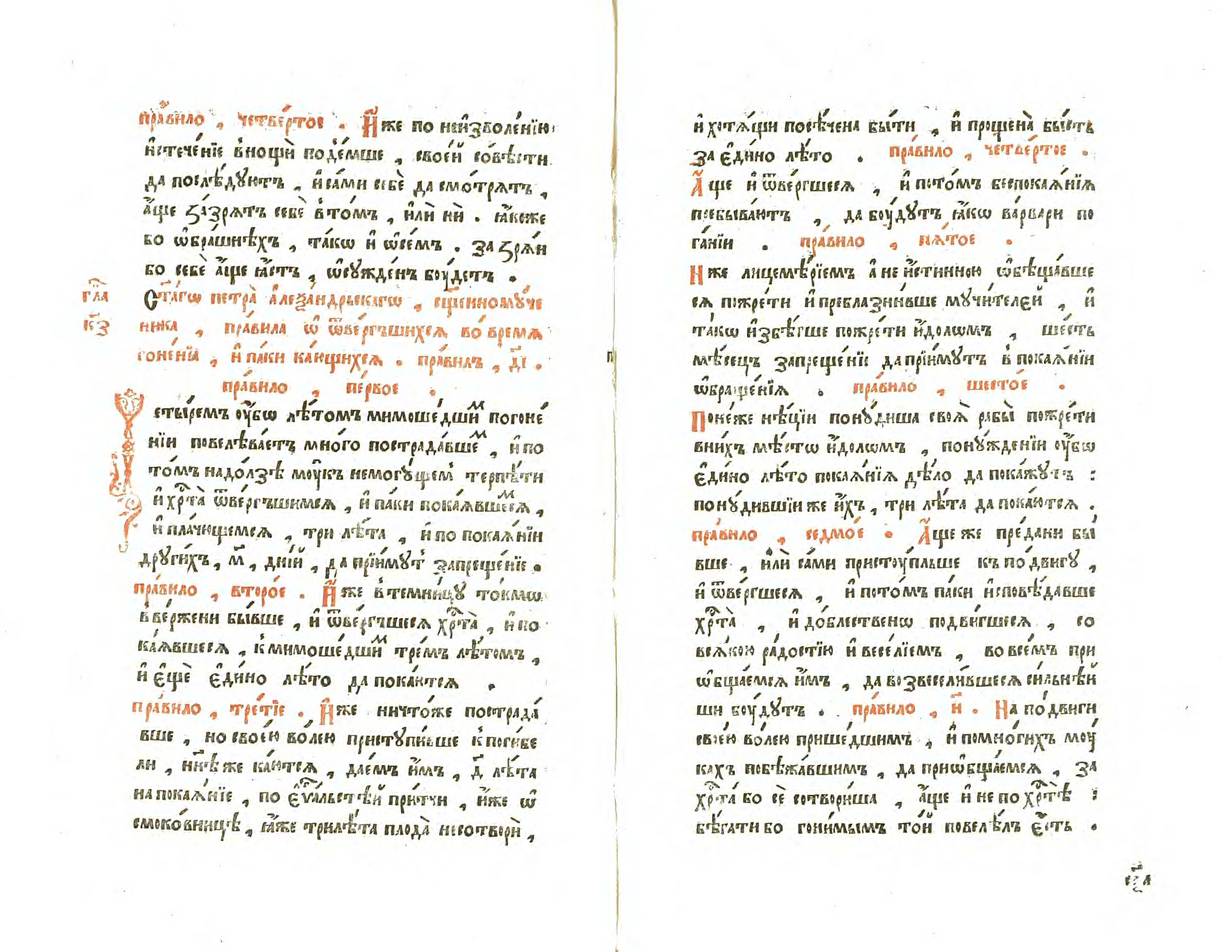 пра́вило , четве́ртое . И҆́же по неизволе́нїю
и҆стече́нїе внощѝ подъе́мше , свое́й со́вѣсти
да послѣ́дуютъ , и҆ са́ми себѐ да смо́трятъ ,
а҆́ще за́зрятъ себѐ вто́мъ , и҆лѝ нѝ . ꙗ҆́коже
бо ѡ҆бра́шнѣхъ , та́кѡ и҆ ѡ҆все́мъ . за́зрѧй
бо себѐ а҆́ще ꙗ҆́стъ , ѡ҆сужде́нъ бꙋ́детъ .
гла҃
Ст҃а́гѡ петра̀ а҆леѯа́ндрьскагѡ , сщ҃енномꙋ́че
к҃з
ника , пра́вила ѡ҆ ѿве́ргъшихся , во вре́мя
гоне́нїя , и҆ па́ки ка́ющихся . пра́вилъ , д҃і .
пра́вило , пе́рвое .
Четы́ремъ ᲂу҆́бѡ лѣ́томъ мимоше́дшиⷨ погоне́
нїи повелѣва́етъ мно́го пострада́вшеⷨ , и҆ по
то́мъ надо́лзѣ мꙋ́къ немогꙋ́щеⷨ терпѣ́ти
и҆ хрⷭ҇та̀ ѿве́ргъшимся , и҆ па́ки пока́явшеⷨся ,
и҆ пла́чющемся , три лѣ́та , и҆ по покая́нїи
дрꙋги́хъ , м҃ , дні́й , да прїи́мꙋтъ запреще́нїе .
пра́вило , второ́е . И҆́же втемни́цꙋ то́кмѡ
вве́ржени бы́вше , и҆ ѿве́ргъшеся хрⷭ҇та̀ , и҆ по
ка́явшеся , к мимоше́дшиⷨ тре́мъ лѣ́томъ ,
и҆ є҆щѐ є҆ди́но лѣ́то да пока́ются .
пра́вило , тре́тїе . И҆́же ничто́же пострада́
вше , но свое́ю во́лею пристꙋпи́вше к поги́бе
ли , нн҃ѣ же ка́ются , дае́мъ и҆̀мъ , д҃ лѣ́та
на покая́нїе , по є҆ѵⷢ҇альстѣй при́тчи , ꙗ҆́же ѡ҆
смоко́вницѣ , ꙗ҆́же три лѣ́та плода̀ несотворѝ ,
и҆ хотя́щи посѣ́чена бы́ти , и҆ прощена̀ бы́сть
за є҆ди́но лѣ́то . пра́вило , четве́ртое .
А҆́ще и҆ ѿве́ргшеся , и҆ пото́мъ беспокая́нїя
пребыва́ютъ , да бꙋ́дꙋтъ ꙗ҆́кѡ ва́рвари по
га́нїи . пра́вило , пя́тое .
И҆́же лицемѣ́рїемъ а҆ не и҆́стинною ѡ҆бѣща́вше
ся пожре́ти и҆ преблазни́вше мꙋчи́телей , и҆
та́кѡ и҆збѣ́гше пожре́ти и҆́доломъ , ше́сть
мѣ́сецъ запреще́нїе да прїи́мꙋтъ в покая́нїи
ѡ҆браще́нїя . пра́вило , шесто́е .
Поне́же нѣ́цїи понꙋ́диша своя̀ рабы̀ пожре́ти
вни́хъ мѣ́стѡ и҆́доломъ , понꙋжде́нїи ᲂу҆́бѡ
є҆ди́но лѣ́то покая́нїя дѣ́ло да пока́жꙋтъ :
понꙋ́дившїи же и҆́хъ , три лѣ́та да пока́ются .
пра́вило , седмо́е . А҆́ще же пре́дани бы́
вше , и҆лѝ са́ми пристꙋ́пльше къ по́двигꙋ ,
и҆ ѿве́ргшеся , и҆ пото́мъ па́ки и҆сповѣ́давше
хрⷭ҇та̀ , и҆ до́блественѡ подви́гшеся , со
вся́кою ра́достїю и҆ весе́лїемъ , во все́мъ при
ѡ҆бща́емся и҆̀мъ , да возвесели́вшеся си́льнѣй
ши бꙋ́дꙋтъ . пра́вило , и҃ . На по́двиги
свое́ю во́лею прише́дшимъ , и҆ помно́гихъ мꙋ́
кахъ побѣжа́вшимъ , да приѡбща́емся , за
хрⷭ҇та́ бо сѐ сотвори́ша , а҆́ще и҆ не по хрⷭ҇тѣ̀ :
бѣ́гати бо гони́мымъ то́й повелѣ́лъ є҆́сть .